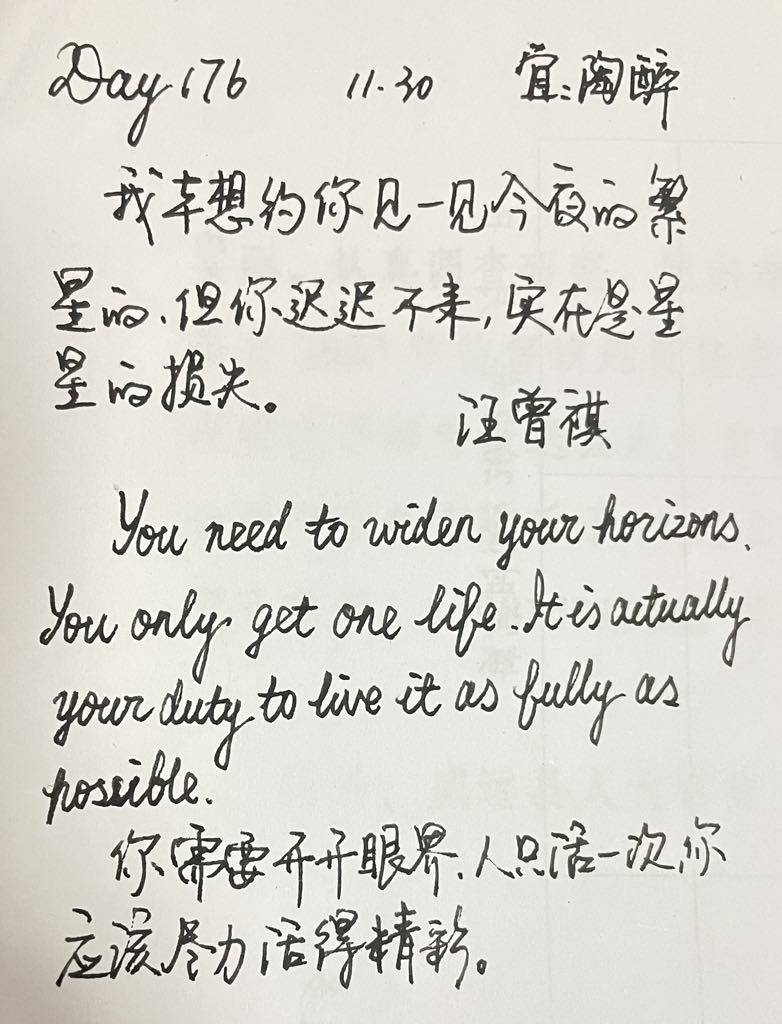 Day 176 11.30 宜:陶醉
我本想约你见一见今夜的繁
星的,但你迟迟不来,实在是星
星的损失。
汪曾祺
You need to widen your horizons.
You only get one life. It is actually
your duty to live it as fully as
possible.
你需要开开眼界,人只活一次,你
应该尽力活得精彩。